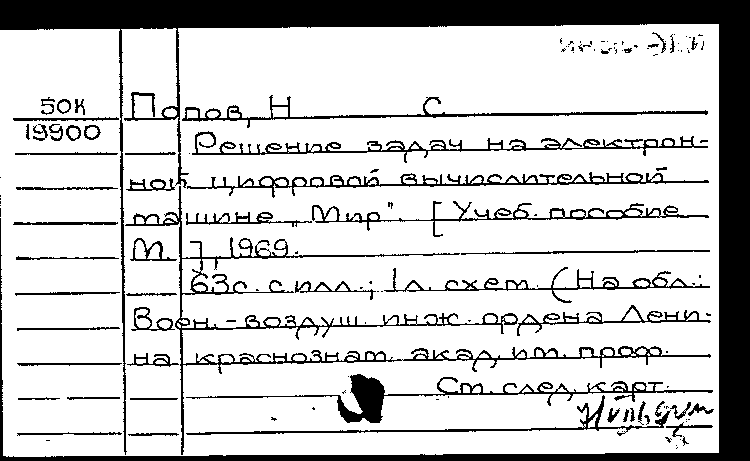 50К Попов, Н С.
19900
Решение задач на электрон-
ной цифровой вычислительной
машине „Мир". [Учеб. пособие
М.], 1969.
63с. с илл.; 1л. схем. (На обл.:
Воен.-воздуш. инж. ордена Лени-
на краснознам. акад. им. проф.
См. след. карт.